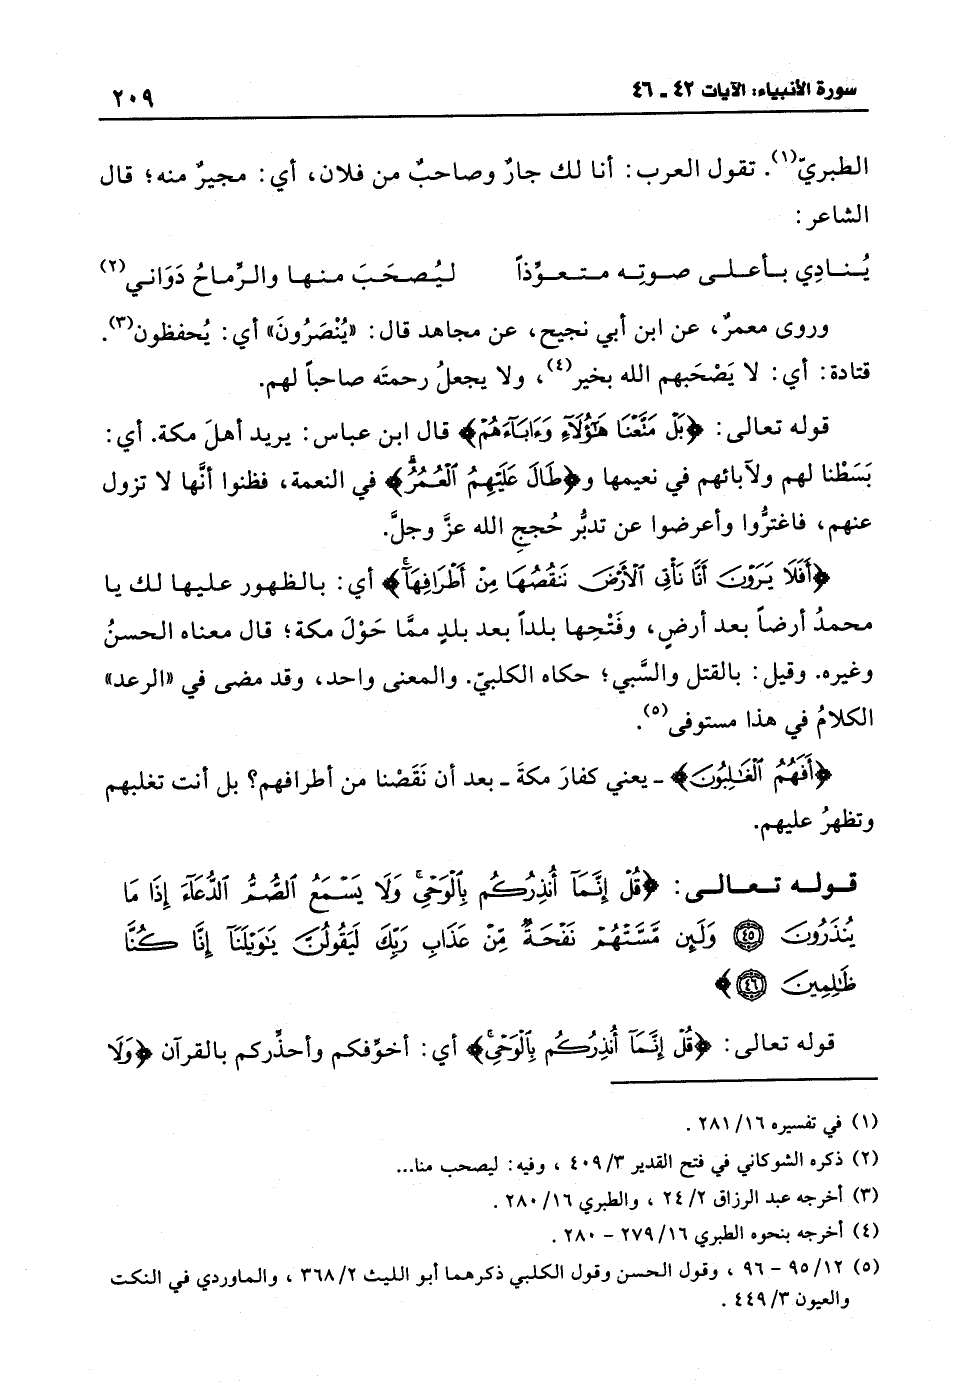 سورة الأنبياء: الآيات ٤٢ ـ ٤٦
٢٠٩
الطبريّ(١). تقول العرب: أنا لك جارٌ وصاحبٌ من فلان، أي: مجيرٌ منه؛ قال
الشاعر:
يُنادِي بأعلى صوتِه متعوِّذاً ليُصحَبَ منها والرِّماحُ دَوَاني(٢)
وروى معمرٌ، عن ابن أبي نجيح، عن مجاهد قال: «يُنْصَرُونَ» أي: يُحفظون(٣).
قتادة: أي: لا يَصْحَبهم الله بخير(٤)، ولا يجعلُ رحمتَه صاحباً لهم.
قوله تعالى: ﴿بَلْ مَنَّعْنَا هَٰٓؤُلَآءِ وَءَابَآءَهُمْ﴾ قال ابن عباس: يريد أهلَ مكة. أي:
بَسَطْنا لهم ولآبائهم في نعيمها و﴿طَالَ عَلَيْهِمُ ٱلْعُمُرُۗ﴾ في النعمة، فظنوا أنَّها لا تزول
عنهم، فاغترُّوا وأعرضوا عن تدبُّر حُججِ الله عزَّ وجلَّ.
﴿أَفَلَا يَرَوْنَ أَنَّا نَأْتِي ٱلْأَرْضَ نَنقُصُهَا مِنْ أَطْرَافِهَآۚ﴾ أي: بالظهور عليها لك يا
محمدُ أرضاً بعد أرضٍ، وفَتْحِها بلداً بعد بلدٍ ممَّا حَوْلَ مكة؛ قال معناه الحسنُ
وغيره. وقيل: بالقتل والسَّبي؛ حكاه الكلبيّ. والمعنى واحد، وقد مضى في «الرعد»
الكلامُ في هذا مستوفى(٥).
﴿أَفَهُمُ ٱلْغَٰلِبُونَ﴾ ـ يعني كفارَ مكةَ ـ بعد أن نَقَصْنا من أطرافهم؟ بل أنت تغلبهم
وتظهرُ عليهم.
قوله تعالى: ﴿قُلْ إِنَّمَآ أُنذِرُكُم بِٱلْوَحْيِۚ وَلَا يَسْمَعُ ٱلصُّمُّ ٱلدُّعَآءَ إِذَا مَا
يُنذَرُونَ ﴿٤٥﴾ وَلَئِن مَّسَّتْهُمْ نَفْحَةٌ مِّنْ عَذَابِ رَبِّكَ لَيَقُولُنَّ يَٰوَيْلَنَآ إِنَّا كُنَّا
ظَٰلِمِينَ ﴿٤٦﴾﴾
قوله تعالى: ﴿قُلْ إِنَّمَآ أُنذِرُكُم بِٱلْوَحْيِۚ﴾ أي: أخوِّفكم وأحذِّركم بالقرآن ﴿وَلَا
(١) في تفسيره ١٦/ ٢٨١ .
(٢) ذكره الشوكاني في فتح القدير ٣/ ٤٠٩ ، وفيه: ليصحب منا...
(٣) أخرجه عبد الرزاق ٢/ ٢٤ ، والطبري ١٦/ ٢٨٠ .
(٤) أخرجه بنحوه الطبري ١٦/ ٢٧٩ - ٢٨٠ .
(٥) ١٢/ ٩٥ - ٩٦ ، وقول الحسن وقول الكلبي ذكرهما أبو الليث ٢/ ٣٦٨ ، والماوردي في النكت
والعيون ٣/ ٤٤٩ .